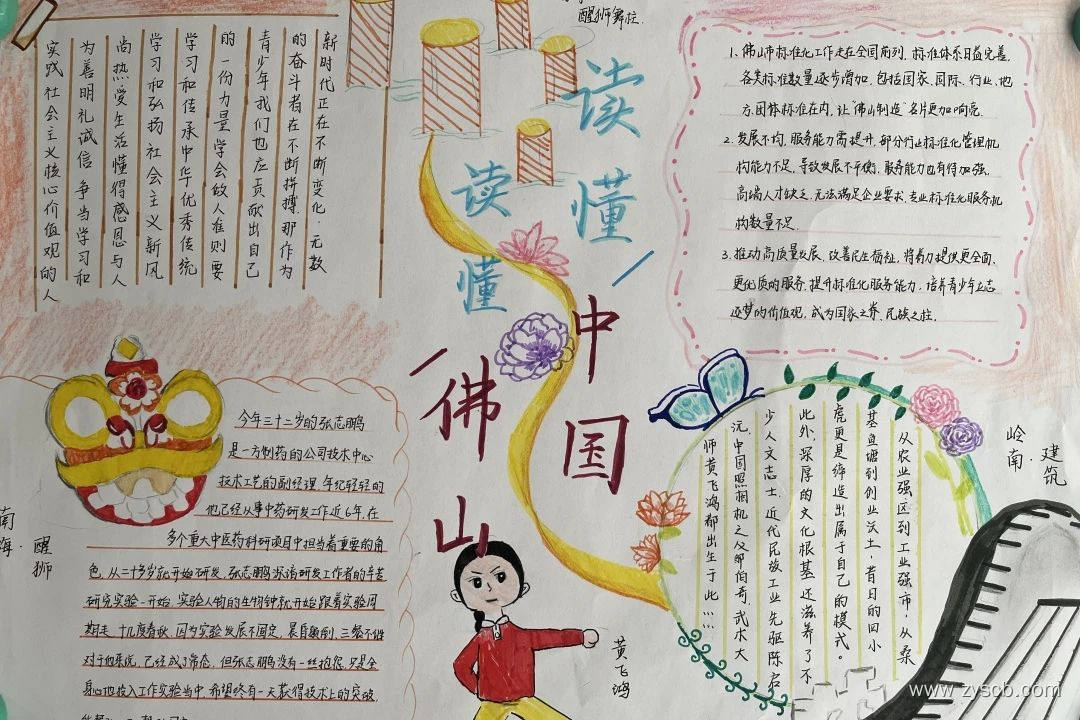 醒狮舞柱.
读懂/中国
读懂/佛山
新时代正在不断变化,无数
的奋斗者在不断拼搏,那作为
青少年我们也应贡献出自己
的一份力量,学会做人准则,要
学习和传承中华优秀传统
学习和弘扬社会主义新风
尚,热爱生活懂得感恩,与人
为善明礼诚信,争当学习和
实践社会主义核心价值观的人
1. 佛山市标准化工作走在全国前列,标准体系日益完善,
各类标准数量逐步增加,包括国家、国际、行业、地
方、团体标准在内,让“佛山制造”名片更加响亮.
2. 发展不均,服务能力需提升,部分行业标准化管理机
构能力不足,导致发展不平衡,服务能力也有待加强.
高端人才缺乏,无法满足企业要求,专业标准化服务机
构数量不足.
3. 推动高质量发展,改善民生福祉,将着力提供更全面、
更优质的服务,提升标准化服务能力,培养青少年立志
逐梦的价值观,成为国家之脊、民族之柱.
南海·醒狮
今年三十二岁的张志鹏
是一方制药的公司技术中心
技术工艺的副经理,年纪轻轻的
他已经从事中药研发工作近6年,在
多个重大中医药科研项目中担当着重要的角
色,从二十多岁就开始研发,张志鹏
研究实验一开始,实验人物的生物钟就开始跟着实验周
期走,十几度春秋,因为实验发展不固定,晨昏颠倒,三餐不继
对于他来说,已经成了常态,但张志鹏没有一丝抱怨,只是全
身心地投入工作实验当中,希望终有一天获得技术上的突破,
黄飞鸿
从农业强区到工业强市,从桑
基鱼塘到创业沃土,昔日的四小
虎更是缔造出属于自己的模式。
此外,深厚的文化根基还滋养了不
少人文志士,近代民族工业先驱陈启
沅,中国照相机之父邹伯奇,武术大
师黄飞鸿都出生于此……
岭南·建筑
www.zyscb.com